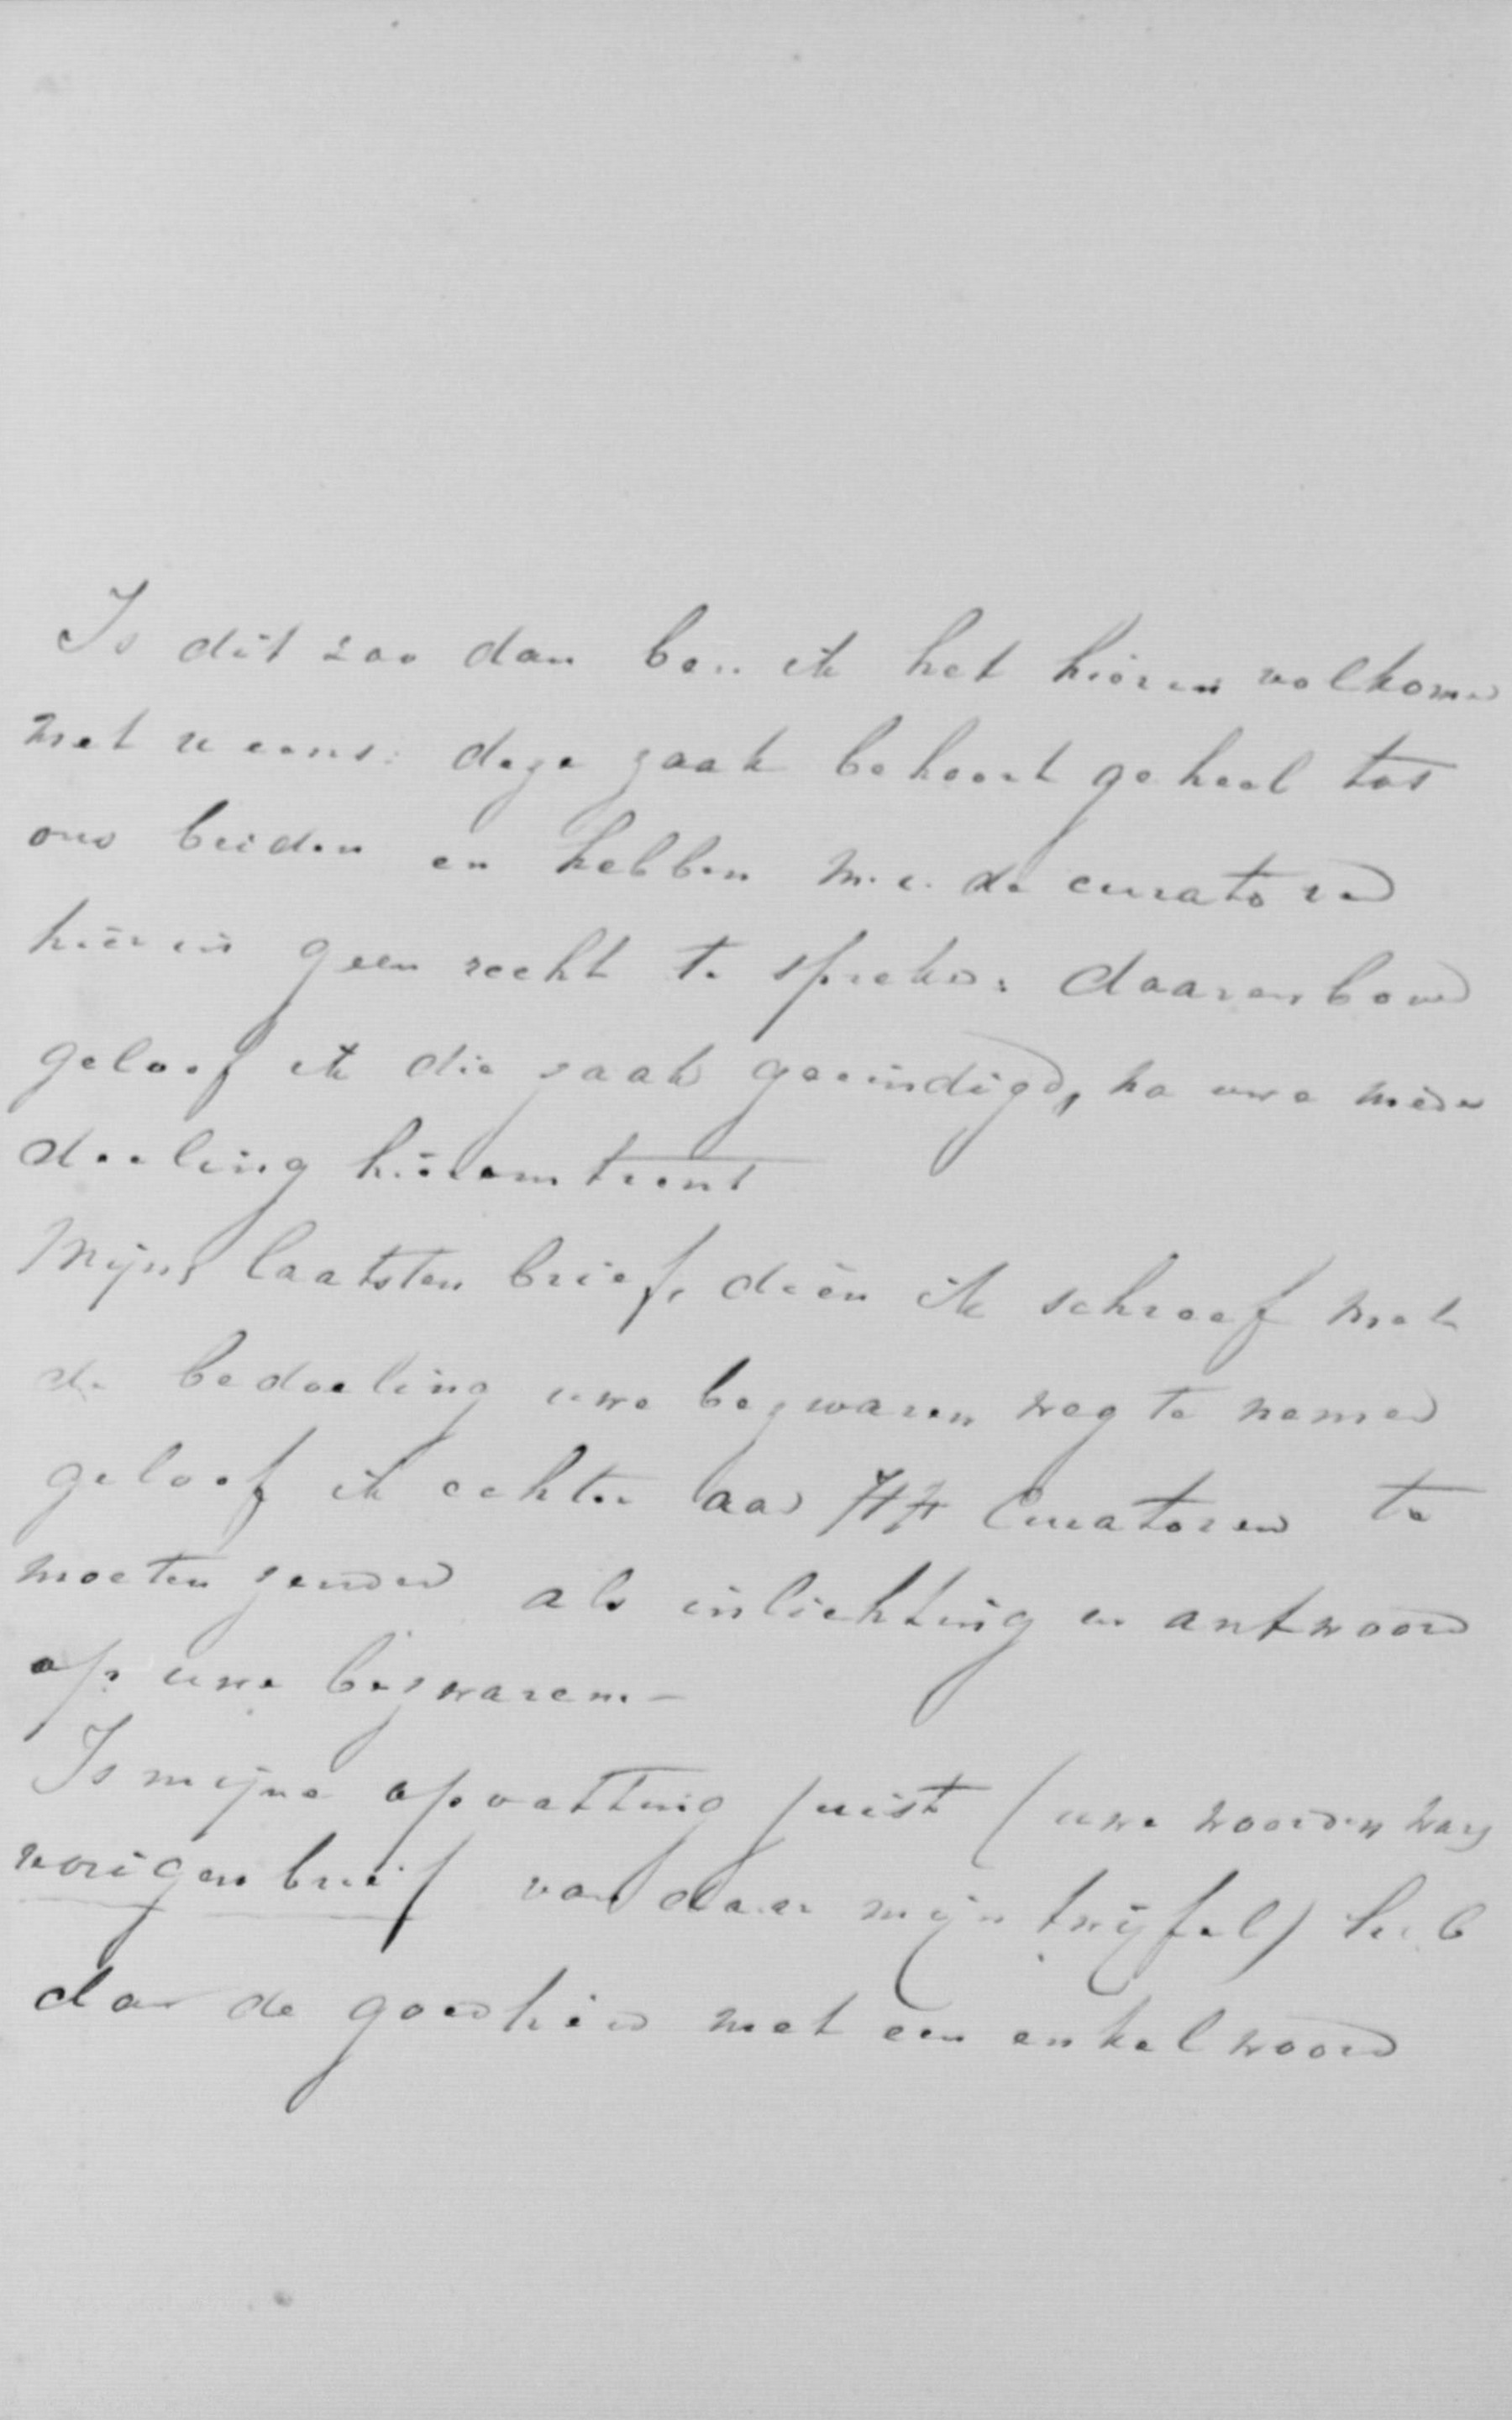 Is dit zoo dan ben ik het hierin volkomen
met u eens: deze zaak behoort geheel tot
ons beiden en hebben m.i. de curatoren
hierin geen recht te spreken: daarenboven
geloof ik die zaak geeindigd, na uwe mede
deeling hieromtrent
Mijns laatsten brief, dien ik schreef met
de bedoeling uwe bezwaren weg te nemen
geloof ik echter aan HH Curatoren te
moeten zenden als inlichting en antwoord
op uwe bezwaren.-
Is mijne opvatting juist (uwe woorden
vorigen brief van daar mijn twijfel) heb
dan de goedheid met een enkel woord